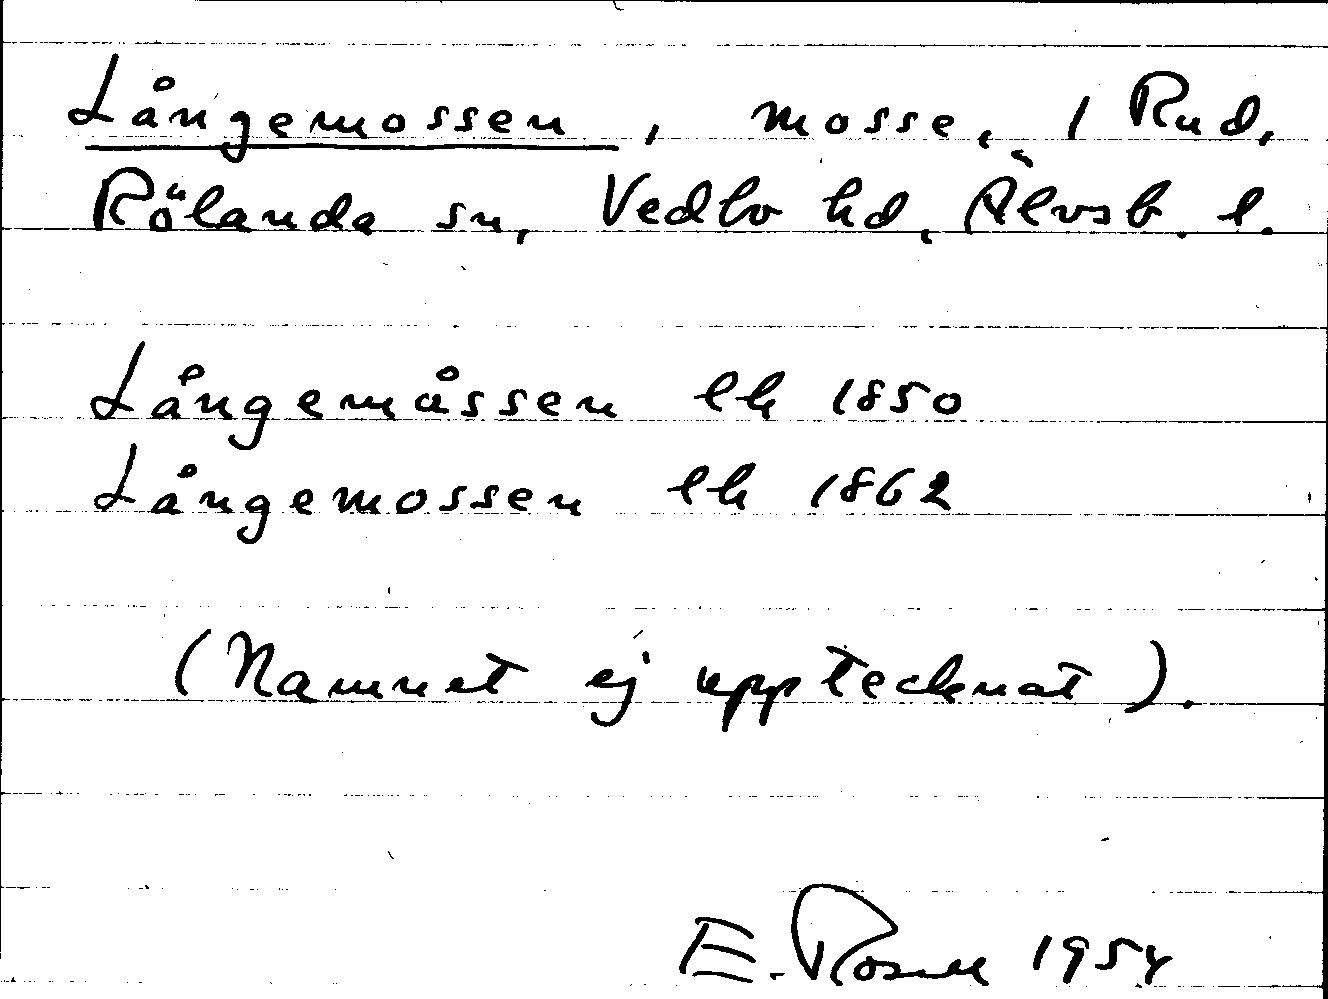 Långemossen, mosse, 1 Rud,
Rölanda sn, Vedbo hd, Älvsb. l.
Långemåssen lk 1850
Långemossen lk 1862
(Namnet ej upptecknat).
E. Rosell 1954